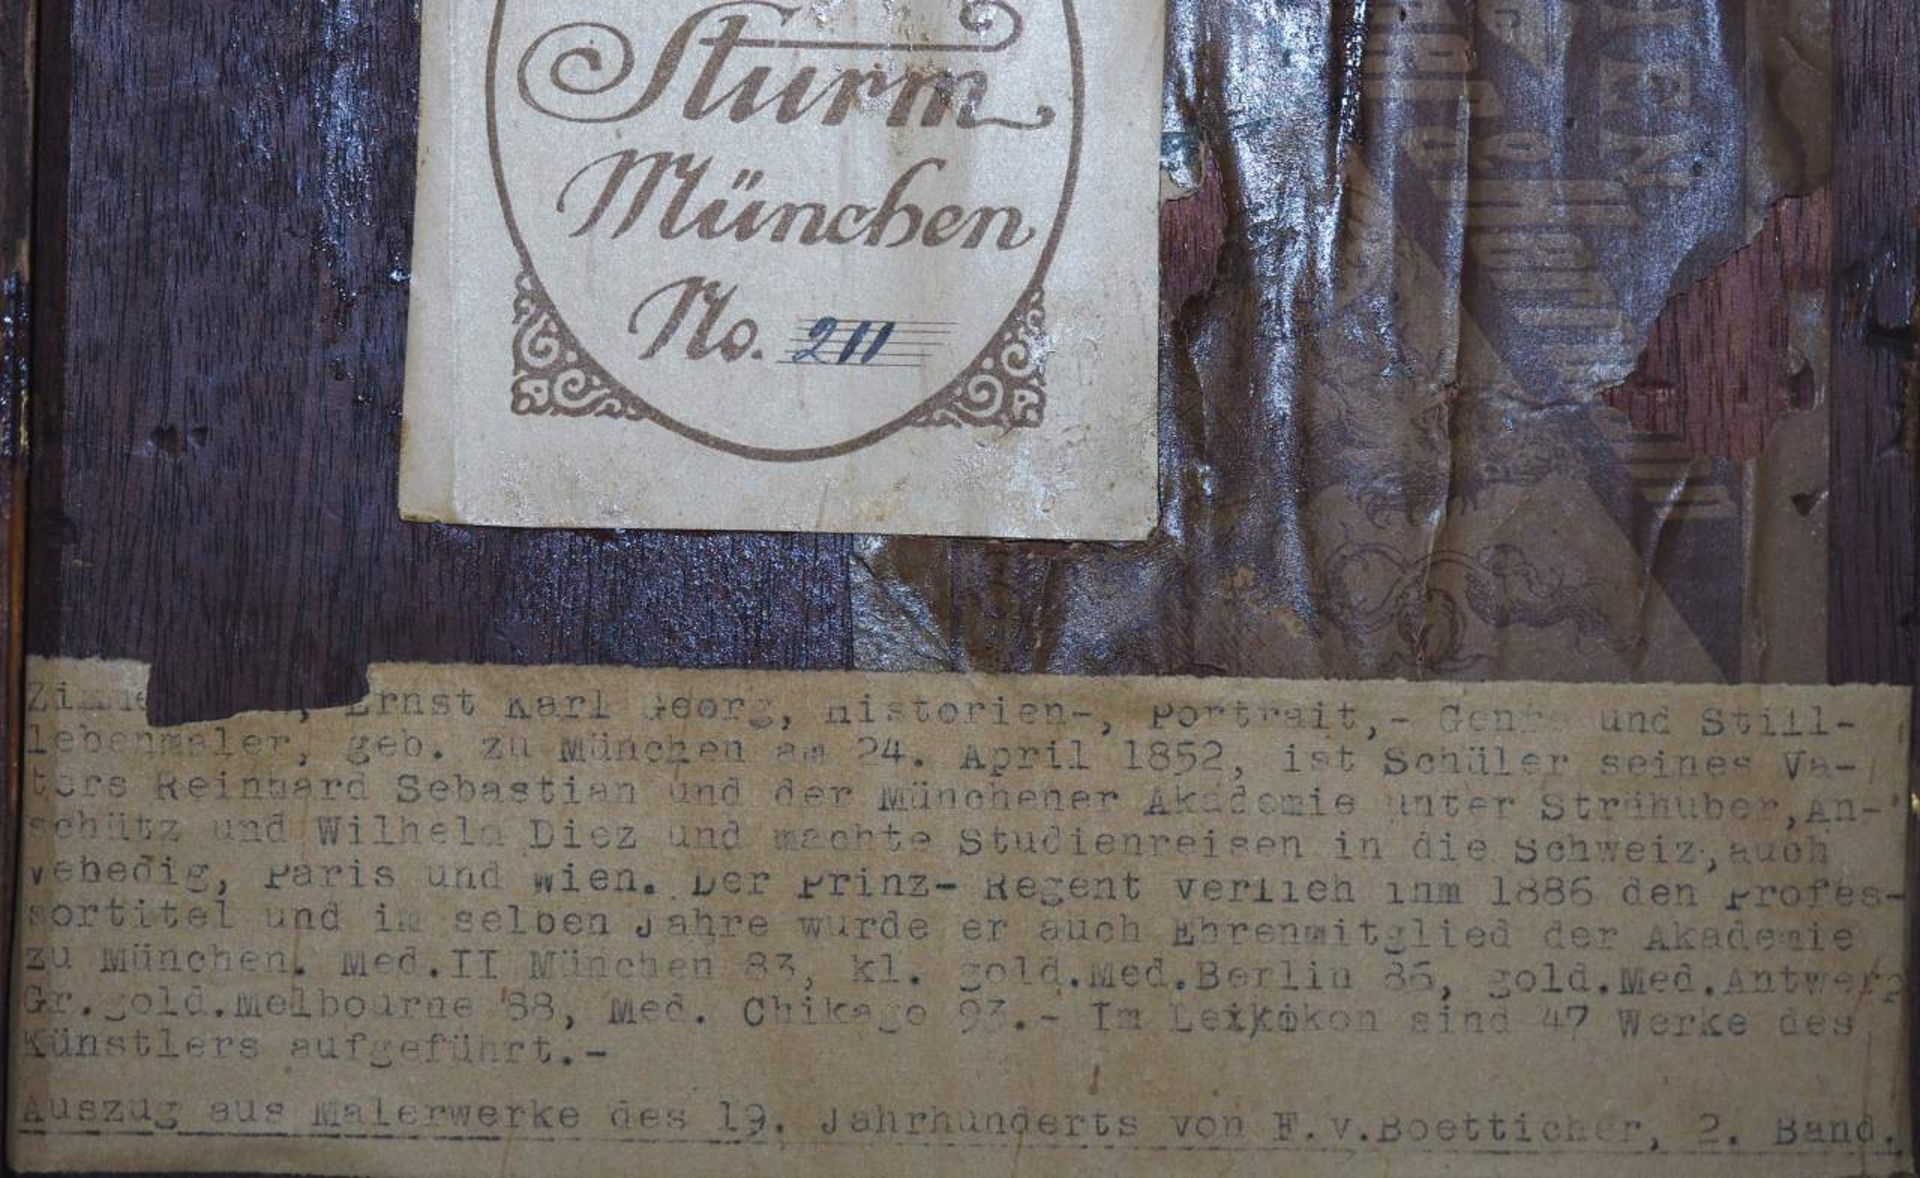 Sturm
München
No. 211
Ernst Karl Georg, Historien-, Portrait,- Genre und Still-
lebenmaler, geb. zu München am 24. April 1852, ist Schüler seines Va-
ters Reinhard Sebastian und der Münchener Akademie unter Strähuber, An-
schütz und Wilhelm Diez und machte Studienreisen in die Schweiz, auch
Vehedig, Paris und Wien. Der Prinz- Regent verlieh ihm 1886 den Profes-
sortitel und im selben Jahre wurde er auch Ehrenmitglied der Akademie
zu München. Med.II München 83, kl. gold.Med.Berlin 86, gold.Med.Antwerp
Gr.gold.Melbourne '88, Med. Chikago 93.- Im Lexikon sind 47 Werke des
Künstlers aufgeführt.-
Auszug aus Malerwerke des 19. Jahrhunderts von F.v.Boetticher, 2. Band.